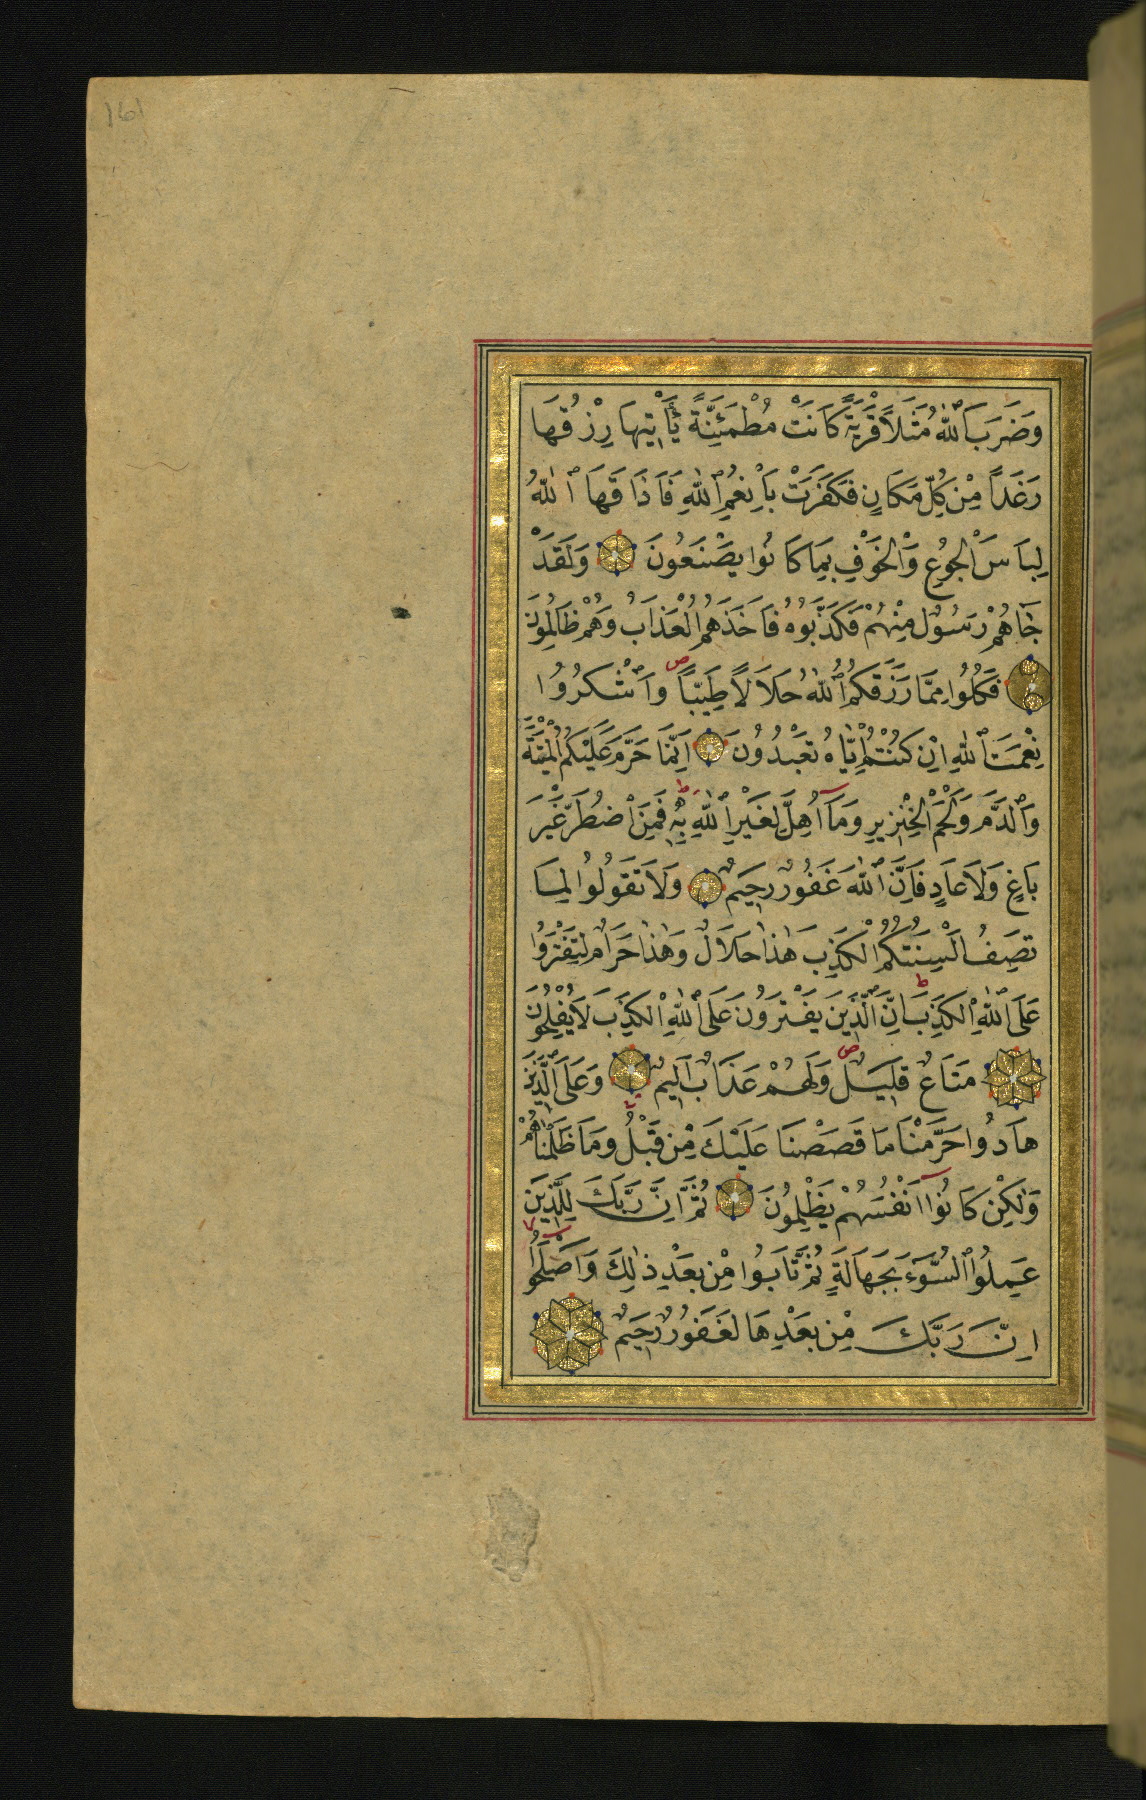 161
وَضَرَبَ ٱللّٰهُ مَثَلًا قَرْيَةً كَانَتْ مُطْمَئِنَّةً يَأْتِيهَا رِزْقُهَا
رَغَدًا مِنْ كُلِّ مَكَانٍ فَكَفَرَتْ بِاَنْعُمِ ٱللّٰهِ فَاَذَاقَهَا ٱللّٰهُ
لِبَاسَ ٱلْجُوعِ وَٱلْخَوْفِ بِمَا كَانُوا يَصْنَعُونَ وَلَقَدْ
جَٓاهُمْ رَسُولٌ مِنْهُمْ فَكَذَّبُوهُ فَاَخَذَهُمُ ٱلْعَذَابُ وَهُمْ ظَالِمُونَ
فَكُلُوا مِمَّا رَزَقَكُمُ ٱللّٰهُ حَلَالًا طَيِّبًا ص وَٱشْكُرُوا
نِعْمَتَ ٱللّٰهِ اِنْ كُنْتُمْ اِيَّاهُ تَعْبُدُونَ اِنَّمَا حَرَّمَ عَلَيْكُمُ ٱلْمَيْتَةَ
وَٱلدَّمَ وَلَحْمَ ٱلْخِنْزِيرِ وَمَٓا اُهِلَّ لِغَيْرِ ٱللّٰهِ بِهِ ط فَمَنِ ٱضْطُرَّ غَيْرَ
بَاغٍ وَلَا عَادٍ فَاِنَّ ٱللّٰهَ غَفُورٌ رَحِيمٌ وَلَا تَقُولُوا لِمَا
تَصِفُ اَلْسِنَتُكُمُ ٱلْكَذِبَ هٰذَا حَلَالٌ وَهٰذَا حَرَامٌ لِتَفْتَرُوا
عَلَى ٱللّٰهِ ٱلْكَذِبَ ط اِنَّ ٱلَّذِينَ يَفْتَرُونَ عَلَى ٱللّٰهِ ٱلْكَذِبَ لَا يُفْلِحُونَ
مَتَاعٌ قَلِيلٌ ص وَلَهُمْ عَذَابٌ اَلِيمٌ وَعَلَى ٱلَّذِينَ
هَادُوا حَرَّمْنَا مَا قَصَصْنَا عَلَيْكَ مِنْ قَبْلُ وَمَا ظَلَمْنَاهُمْ
وَلٰكِنْ كَانُوٓا اَنْفُسَهُمْ يَظْلِمُونَ ثُمَّ اِنَّ رَبَّكَ لِلَّذِينَ
عَمِلُوا ٱلسُّوٓءَ بِجَهَالَةٍ ثُمَّ تَابُوا مِنْ بَعْدِ ذٰلِكَ وَاَصْلَحُوٓا
اِنَّ رَبَّكَ مِنْ بَعْدِهَا لَغَفُورٌ رَحِيمٌ